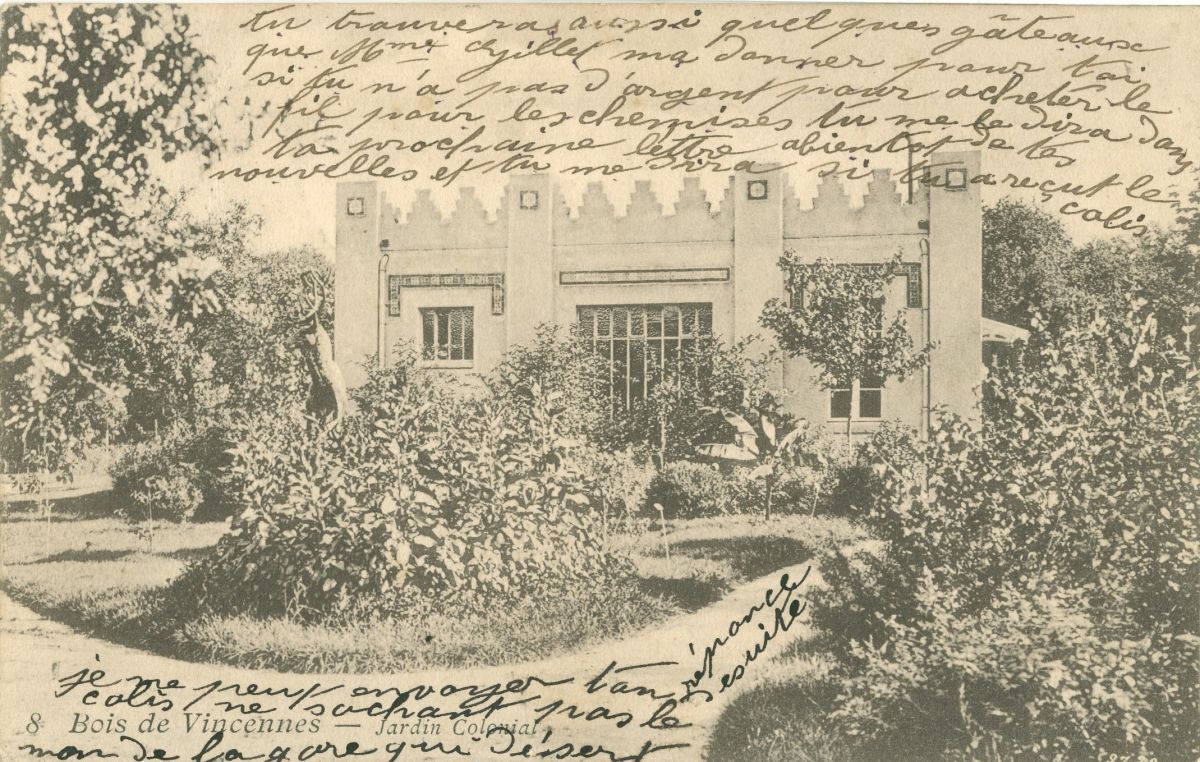 tu trouvera aussi quelques gâteaux
que Mme ma donner pour toi
si tu n'a pas d'argent pour acheter le
fil pour les chemises tu me le dira dans
ta prochaine lettre abientot de tes
nouvelles et tu me dira si tu a reçut le
colis
réponce
desuite
je ne peut envoyer ton
colis ne sachant pas le
non de la gare qui désert
8 Bois de Vincennes — Jardin Colonial